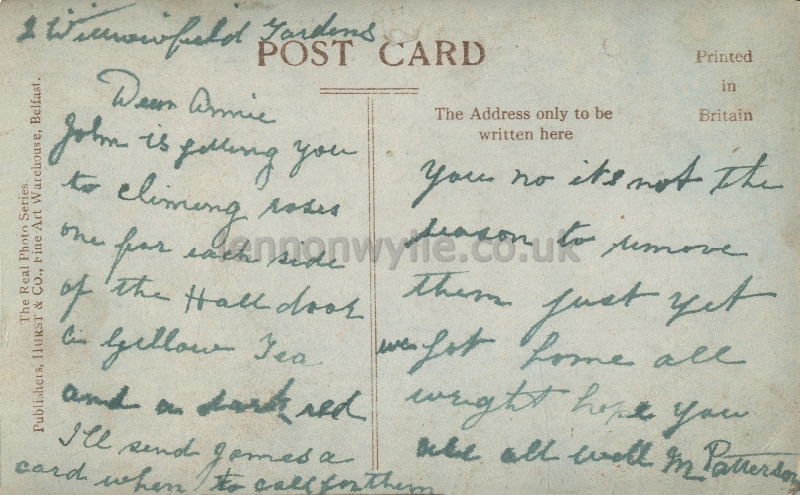 2 Willowfield Gardens
POST CARD
Printed
in
Britain
The Address only to be
written here
The Real Photo Series.
Publishers, HURST & CO., Fine Art Warehouse, Belfast.
Dear Annie
John is getting you
to climing roses
one for each side
of the Hall door
a yellow Tea
and a dark red
I'll send James a
card when to call for them
You no its not the
season to remove
them just yet
we got home all
wright hope you
are all well M Patterson
lennonwylie.co.uk